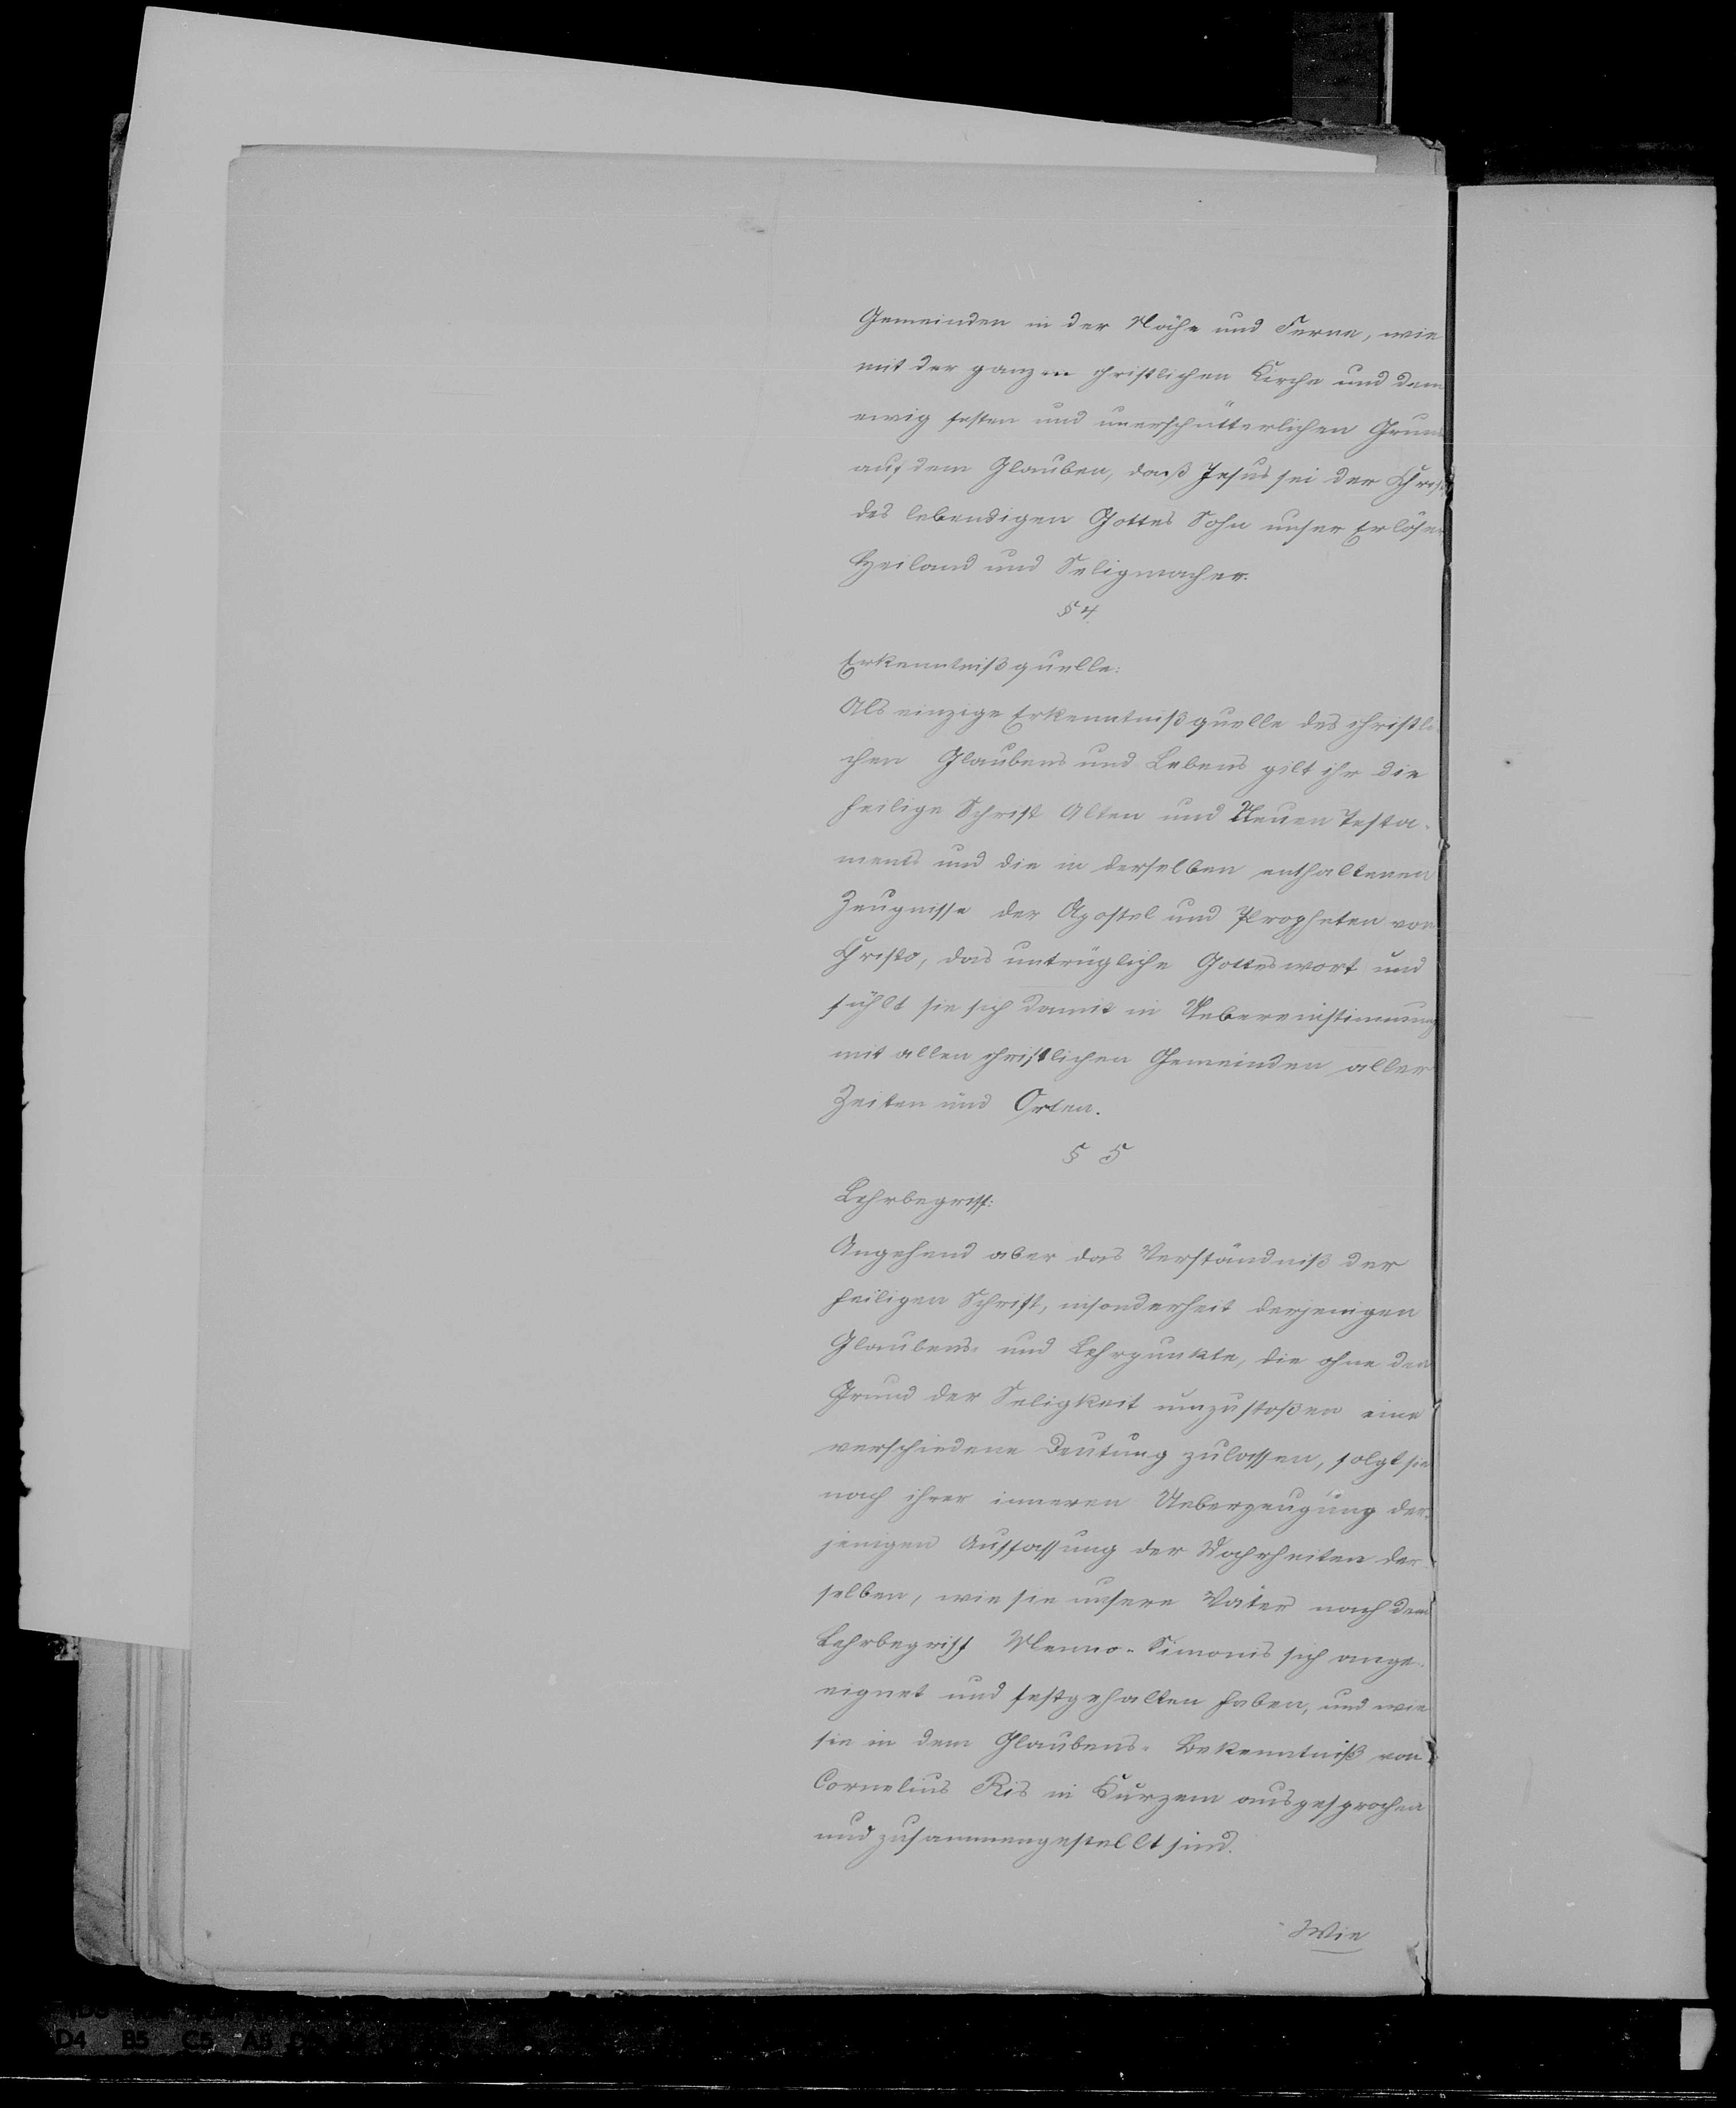 Gemeinden in der Nähe und Ferne, wie
mit der ganzen christlichen Kirche und dem
ewig festen und unerschütterlichen Grund
auf dem Glauben, daß Jesus sei der Christ
des lebendigen Gottes Sohn unser Erlöser
Heiland und Seligmacher.
§ 4
Erkenntnißquelle:
Als einzige Erkenntnißquelle des christli
chen Glaubens und Lebens gilt ihr die
heilige Schrift Alten und Neuen Testa-
ments und die in derselben enthaltenen
Zeugnisse der Apostel und Propheten von
Christo, das untrügliche Gotteswort und
fühlt sie sich damit in Uebereinstimmung
mit allen christlichen Gemeinden aller
Zeiten und Orten.
§ 5
Lehrbegriff:
Angehend aber das Verständniß der
heiligen Schrift, insonderheit derjenigen
Glaubens- und Lehrpunkte, die ohne den
Grund der Seligkeit umzustoßen eine
verschiedene Deutung zulassen, folgt sie
nach ihrer inneren Ueberzeugung der-
jenigen Auffassung der Wahrheiten der-
selben, wie sie unsere Väter nach dem
Lehrbegriff Menno-Simonis sich ange-
eignet und festgehalten haben, und wie
sie in dem Glaubens-Bekenntniß von
Cornelius Ris in Kurzem ausgesprochen
und zusammengestellt sind.
Wie
D4 B5 C5 A5